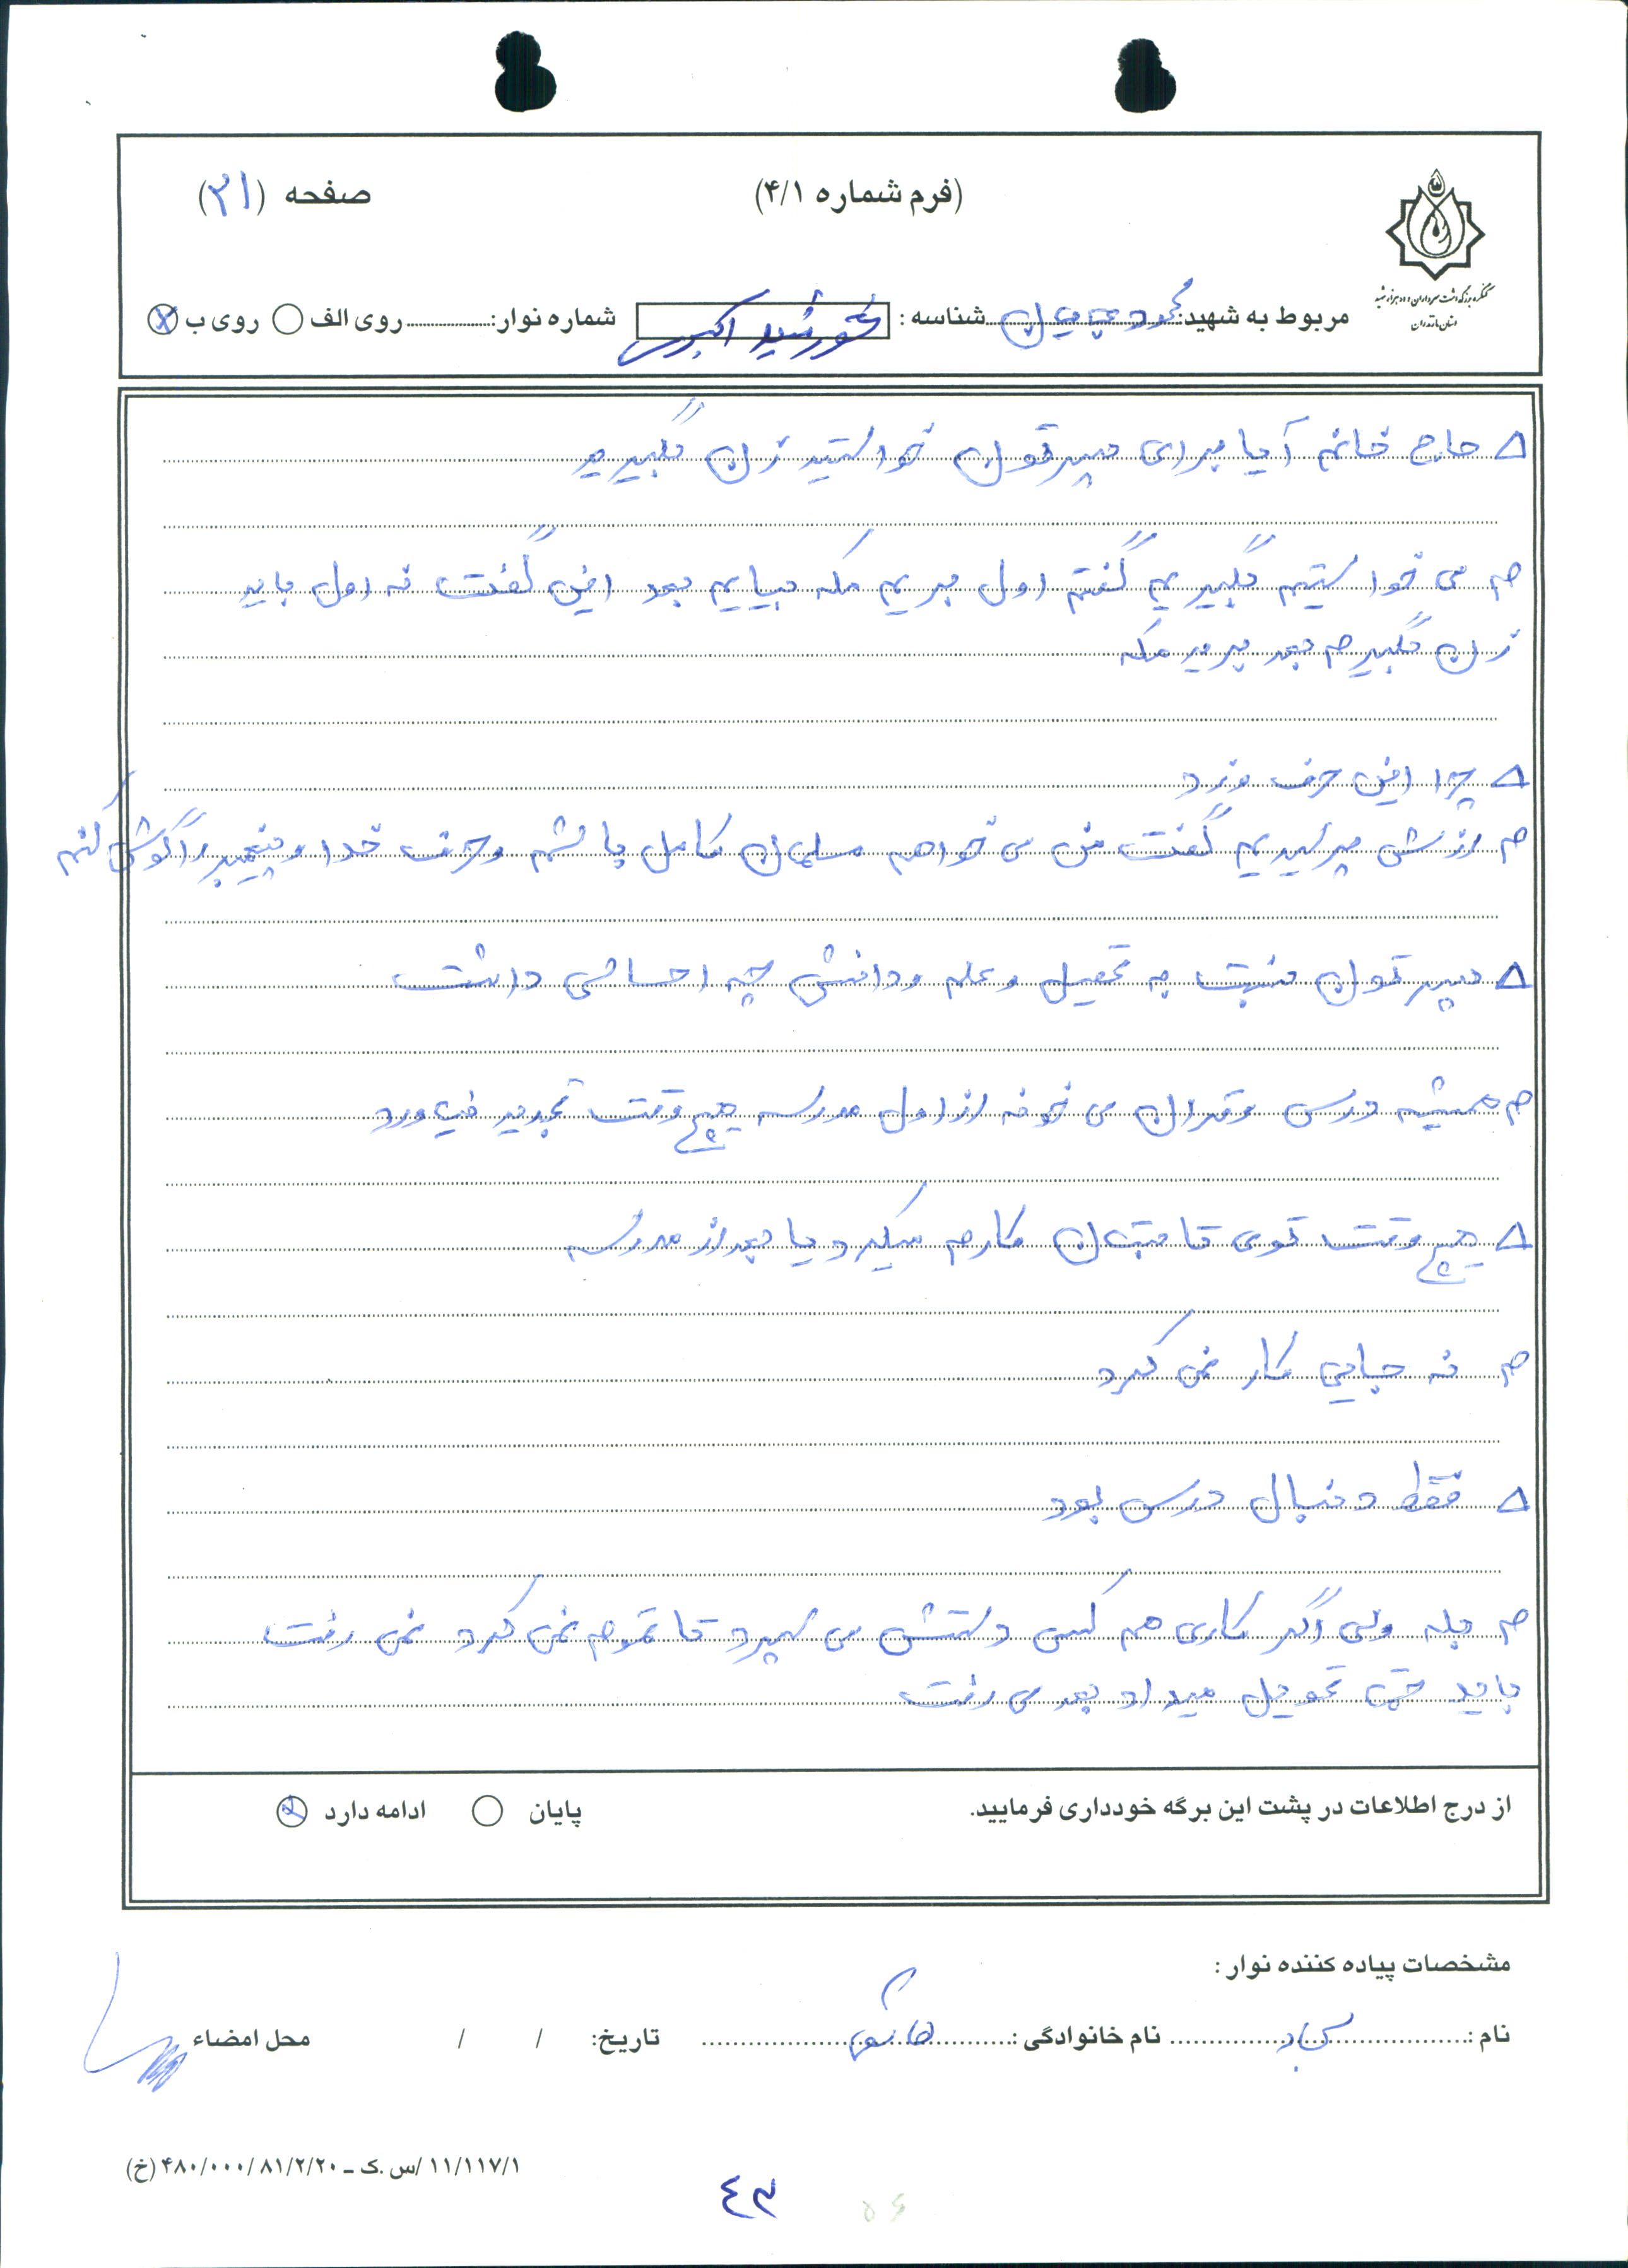 (فرم شماره ۴/۱)
صفحه (۲۱)
کنگره بزرگداشت سرداران و ده هزار شهید
استان مازندران
مربوط به شهید: محمود شناسه : خورشید اکبری شماره نوار: روی الف روی ب
∆ حاج خانم آیا برای پسرتون خواستید زن بگیرید
ص می خواستیم بگیریم گفتم اول بریم مکه بیایم بعد این گفت نه اول باید
زن بگیرم بعد برید مکه
∆ چرا این حرف و زد
ص ازش پرسیدیم گفت من می خواهم مسلمان کامل باشم و حرف خدا و پیغمبر را گوش کنم
∆ پسرتون نسبت به تحصیل و علم و دانش چه احساسی داشت
ص همیشه درس و قران می خونه از اول مدرسه هیچ وقت تجدید نمیاورد
∆ هیچ وقت توی تابستان کارم میکرد یا بعد از مدرسه
ص نه جایی کار نمی کرد
∆ فقط دنبال درس بود
ص بله ولی اگر کاری هم کسی دستش می سپرد تا تموم نمی کرد نمی رفت
باید حتی تحویل میداد بعد می رفت
از درج اطلاعات در پشت این برگه خودداری فرمایید.
پایان ادامه دارد
مشخصات پیاده کننده نوار :
نام : نام خانوادگی : هاشمی تاریخ: / / محل امضاء
۱۱/۱۱۷/۱ /س.ک ـ ۴۸۰/۰۰۰/ ۸۱/۲/۲۰ (خ)
٤٣